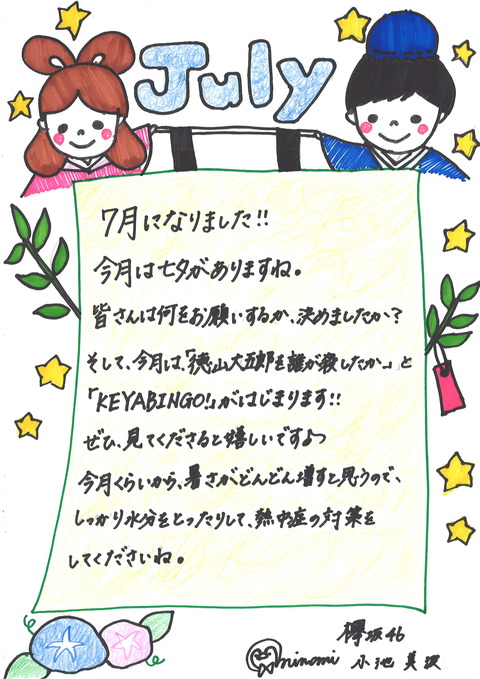 July
7月になりました!!
今月は七夕がありますね。
皆さんは何をお願いするか、決めましたか?
そして、今月は、「徳山大五郎を誰が殺したか」と
「KEYABINGO!」がはじまります!!
ぜひ、見てくださると嬉しいですよっ
今月くらいから、暑さがどんどん増すと思うので、
しっかり水分をとったりして、熱中症の対策を
してくださいね。
欅坂46
minami 小池美波